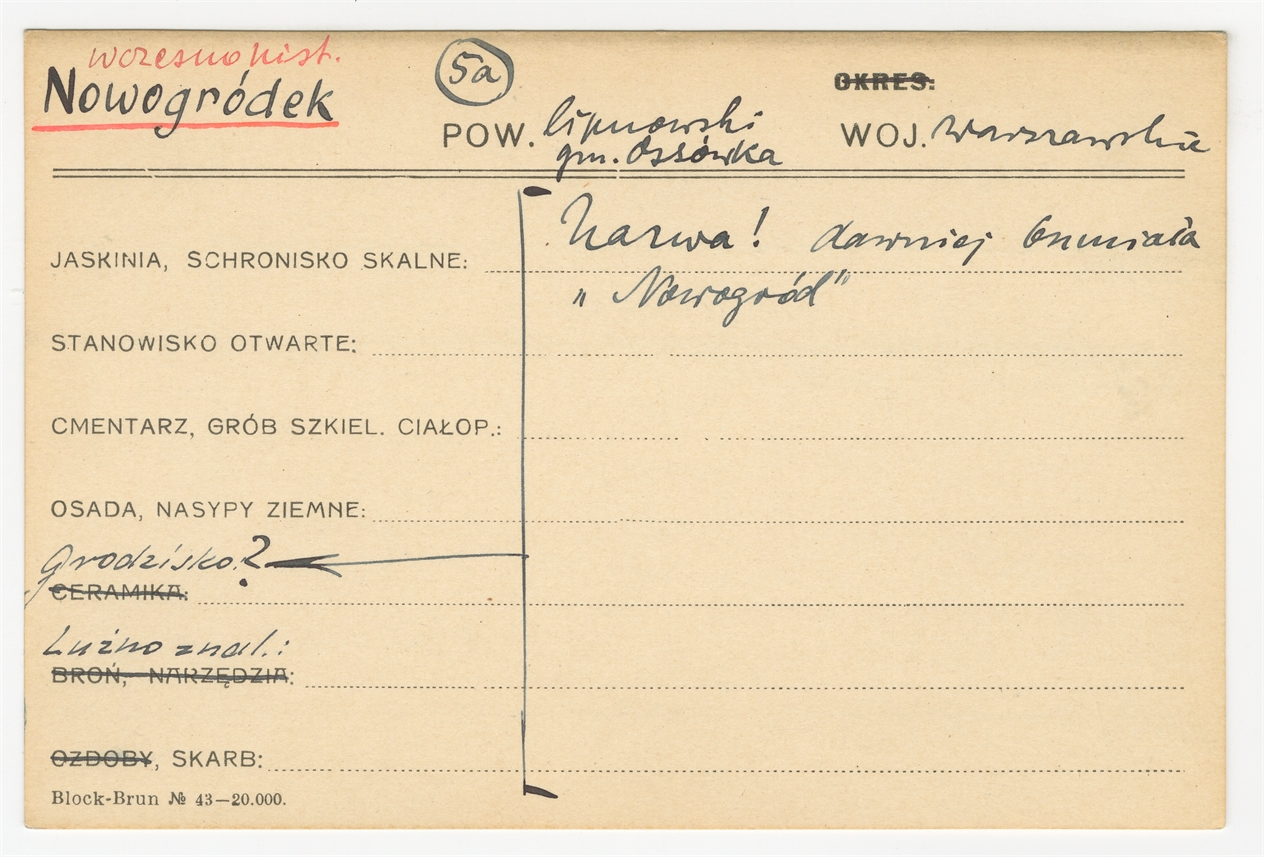 wczesnohist.
Nowogródek
5a
OKRES:
POW. lipnowski
gm. Ossówka
WOJ. Warszawskie
Nazwa! dawniej brzmiała
„Nowogród"
JASKINIA, SCHRONISKO SKALNE:
STANOWISKO OTWARTE:
CMENTARZ, GRÓB SZKIEL. CIAŁOP.:
OSADA, NASYPY ZIEMNE:
Grodzisko?
CERAMIKA:
Luźno znal.:
BROŃ, NARZĘDZIA:
OZDOBY, SKARB:
Block-Brun № 43—20.000.